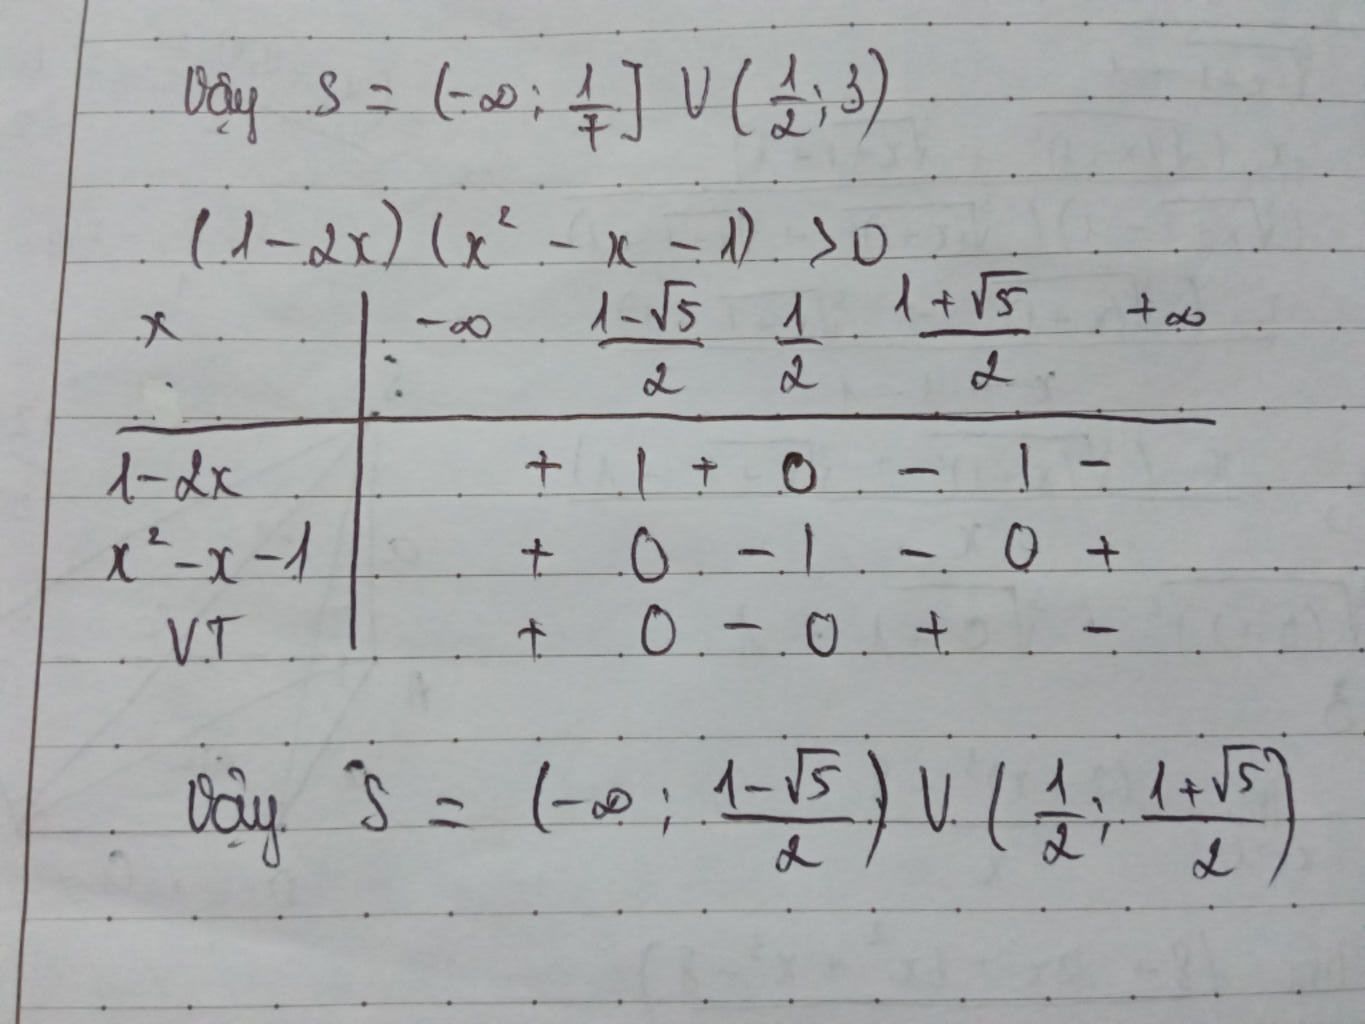 Vậy S = (-∞; 1/7] ∪ (1/2; 3)
(1-2x)(x² - x - 1) > 0
x | -∞ (1-√5)/2 1/2 (1+√5)/2 +∞
1-2x | + | + 0 - | -
x²-x-1 | + 0 - | - 0 +
VT | + 0 - 0 + -
Vậy S = (-∞; (1-√5)/2) ∪ (1/2; (1+√5)/2)